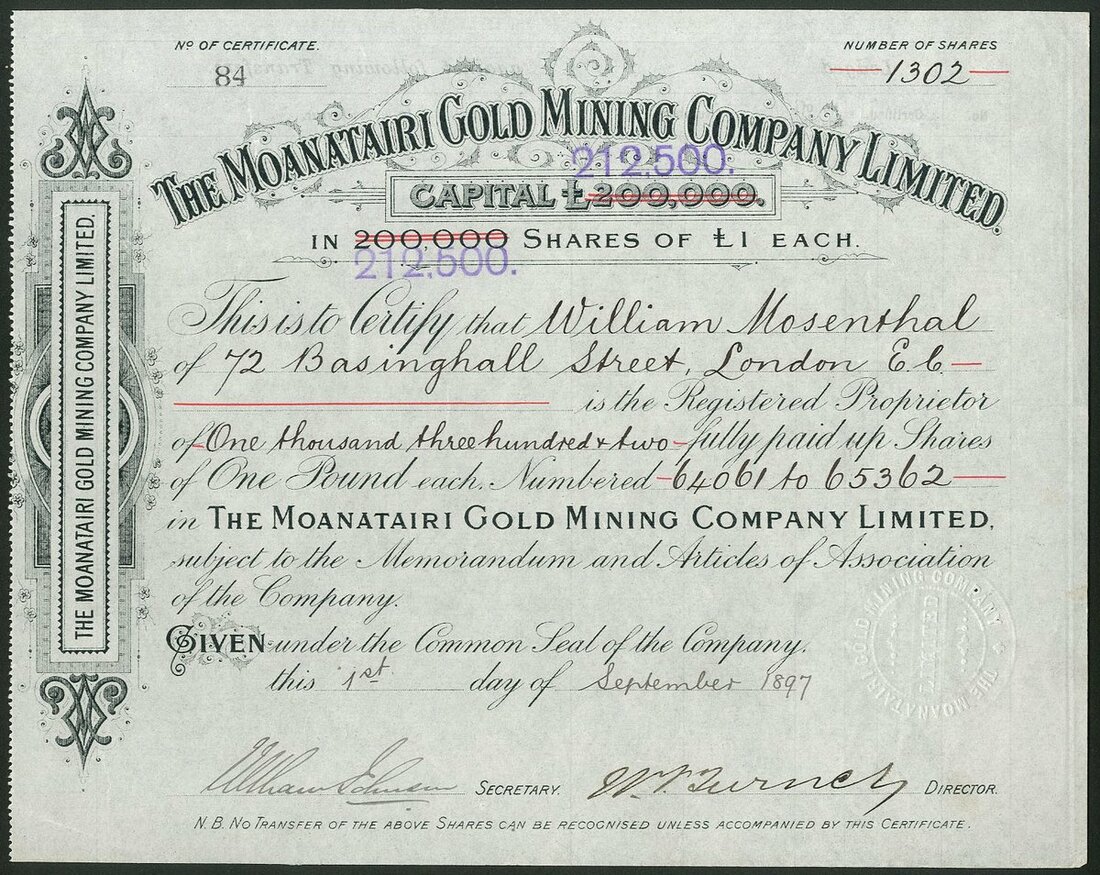 Nº OF CERTIFICATE.
84
NUMBER OF SHARES
1302
THE MOANATAIRI GOLD MINING COMPANY LIMITED.
212,500.
CAPITAL £200,000.
IN 200,000 SHARES OF £1 EACH.
212,500.
THE MOANATAIRI GOLD MINING COMPANY LIMITED.
This is to Certify that William Mosenthal
of 72 Basinghall Street, London E.C
is the Registered Proprietor
of One thousand three hundred & two fully paid up Shares
of One Pound each, Numbered 64061 to 65362
in THE MOANATAIRI GOLD MINING COMPANY LIMITED,
subject to the Memorandum and Articles of Association
of the Company.
GIVEN under the Common Seal of the Company.
this 1st day of September 1897
THE MOANATAIRI GOLD MINING COMPANY
LIMITED
SECRETARY.
DIRECTOR.
N.B. NO TRANSFER OF THE ABOVE SHARES CAN BE RECOGNISED UNLESS ACCOMPANIED BY THIS CERTIFICATE.